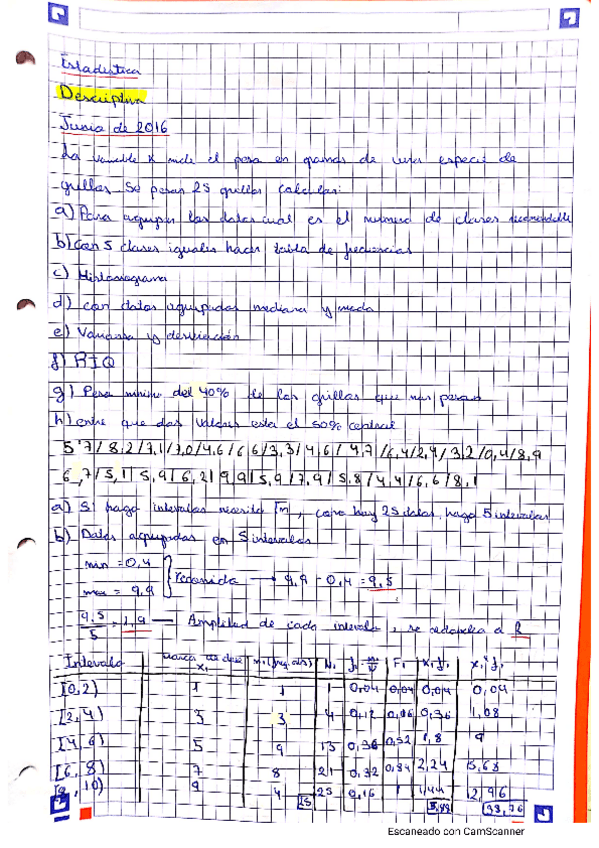 Estadística
Descriptiva
Junio de 2016
La variable X mide el peso en gramos de una especie de
grillos. Se pesan 25 grillos calcular:
a) Para agrupar los datos cual es el numero de clases recomendable
b) con 5 clases iguales hacer tabla de frecuencias
c) Histograma
d) con datos agrupados mediana y moda
e) Varianza y desviación
f) RIQ
g) Peso minimo del 40% de los grillos que mas pesan
h) entre que dos valores esta el 50% central
5,7/8,2/7,1/7,0/4,6/6,6/3,3/4,6/4,7/6,4/2,4/3,2/0,4/8,9
6,7/5,1/5,9/6,2/9,9/5,9/7,9/5,8/4,4/6,6/8,1
a) Si hago intervalos necesito √n, como hay 25 datos, hago 5 intervalos
b) Datos agrupados en 5 intervalos
min = 0,4
max = 9,9
recorrido → 9,9 - 0,4 = 9,5
9,5/5 = 1,9 — Amplitud de cada intervalo, se redondea a 2
Intervalo Marca de clase xi ni (frec. abs) Ni fi = n/N Fi xi·fi xi²·fi
[0,2) 1 1 1 0,04 0,04 0,04 0,04
[2,4) 3 3 4 0,12 0,16 0,36 1,08
[4,6) 5 9 13 0,36 0,52 1,8 9
[6,8) 7 8 21 0,32 0,84 2,24 15,68
[8,10) 9 4 25 0,16 1 1,44 12,96
25 5,88 38,76
Escaneado con CamScanner